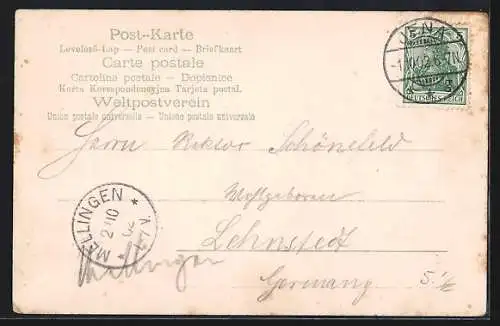 Post-Karte
Levelező-Lap — Post card — Briefkaart
Carte postale
Cartolina postale — Dopisnice
Karta Korespondencyjna Tarjeta postal.
Weltpostverein
Union postale universelle — Unione postale universale
JENA
DEUTSCHES REICH
Herrn Rektor Schönefeld
Wohlgeboren
Lehnstedt
Germany
MELLINGEN
2 10
Mellingen